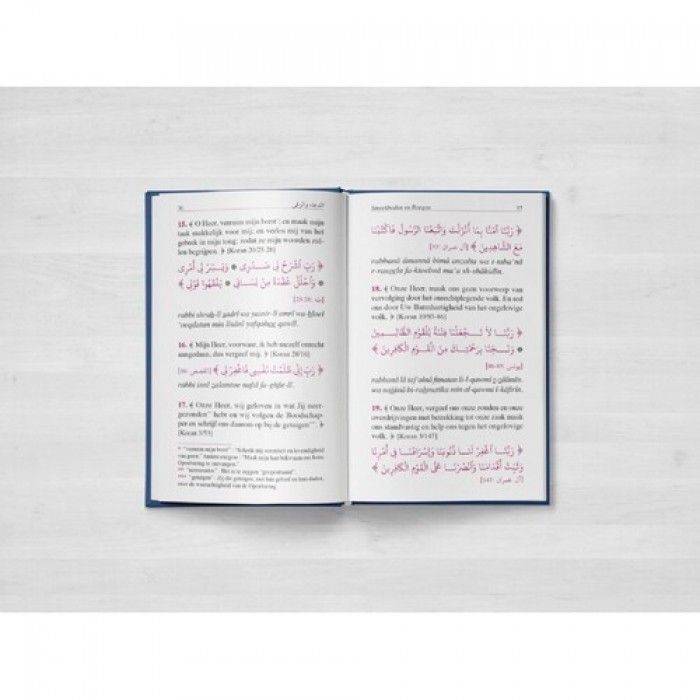 الدعاء والرقى
15. ﴾ O Heer, verruim mijn borst*; en maak mijn
taak makkelijk voor mij; en verlos mij van het
gebrek in mijn tong; zodat ze mijn woorden zul-
len begrijpen. ﴿ [Koran 20/25-28]
﴿ رَبِّ اشْرَحْ لِي صَدْرِي ۞ وَيَسِّرْ لِي أَمْرِي
۞ وَاحْلُلْ عُقْدَةً مِنْ لِسَانِي ۞ يَفْقَهُوا قَوْلِي ﴾
[طه: 25-28]
rabbi shraḥ-lî ṣadrî wa yassir-lî amrî wa ḥlool
'ooqdatan min lisânî yafqahoo qawlî.
16. ﴾ Mijn Heer, voorwaar, ik heb mezelf onrecht
aangedaan, dus vergeef mij. ﴿ [Koran 28/16]
﴿ رَبِّ إِنِّي ظَلَمْتُ نَفْسِي فَاغْفِرْ لِي ﴾ [القصص: 16]
rabbi innî ẓalamtoe nafsî fa-ghfir-lî.
17. ﴾ Onze Heer, wij geloven in wat Jij neer-
gezonden** hebt en wij volgen de Boodschap-
per en schrijf ons daarom op bij de getuigen***. ﴿
[Koran 3/53]
* "verruim mijn borst":
Openbaring te ontvangen."
Smeekbeden en Roeqya
﴿ رَبَّنَا آمَنَّا بِمَا أَنْزَلْتَ وَاتَّبَعْنَا الرَّسُولَ فَاكْتُبْنَا
مَعَ الشَّاهِدِينَ ﴾ [آل عمران: 53]
rabbanâ âmannâ bimâ anzalta wa t-taba'nâ
r-rasoola fa-ktoobnâ ma'a sh-shâhidîn.
18. ﴾ Onze Heer, maak ons geen voorwerp van
vervolging door het onrechtplegende volk. En red
ons door Uw Barmhartigheid van het ongelovige
volk. ﴿ [Koran 10/85-86]
﴿ رَبَّنَا لَا تَجْعَلْنَا فِتْنَةً لِلْقَوْمِ الظَّالِمِينَ
۞ وَنَجِّنَا بِرَحْمَتِكَ مِنَ الْقَوْمِ الْكَافِرِينَ ﴾
[يونس: 85-86]
rabbanâ lâ taj'alnâ fitnatan li-l-qawmi ẓ-ẓâlimîn
wa najjinâ bi-raḥmatika min al-qawmi l-kâfirîn.
19. ﴾ Onze Heer, vergeef ons onze zonden en onze
overdrijvingen met betrekking tot onze zaak maak
ons standvastig en help ons tegen het ongelovige
volk. ﴿ [Koran 3/147]
﴿ رَبَّنَا اغْفِرْ لَنَا ذُنُوبَنَا وَإِسْرَافَنَا فِي أَمْرِنَا
وَثَبِّتْ أَقْدَامَنَا وَانْصُرْنَا عَلَى الْقَوْمِ الْكَافِرِينَ ﴾
[آل عمران: 147]